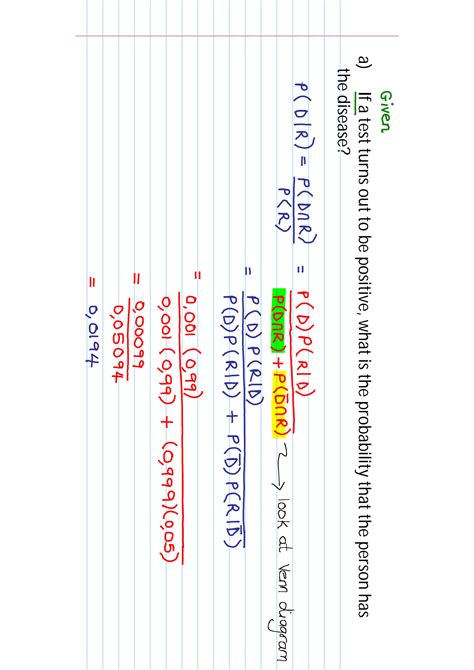 Given
a) If a test turns out to be positive, what is the probability that the person has
the disease?
P(D|R) = P(D∩R) / P(R) = P(D)P(R|D) / P(D∩R) + P(D̄∩R) → look at Venn diagram
= P(D)P(R|D) / P(D)P(R|D) + P(D̄)P(R|D̄)
= 0,001 (0,99) / 0,001 (0,99) + (0,999)(0,05)
= 0,00099 / 0,05094
= 0,0194